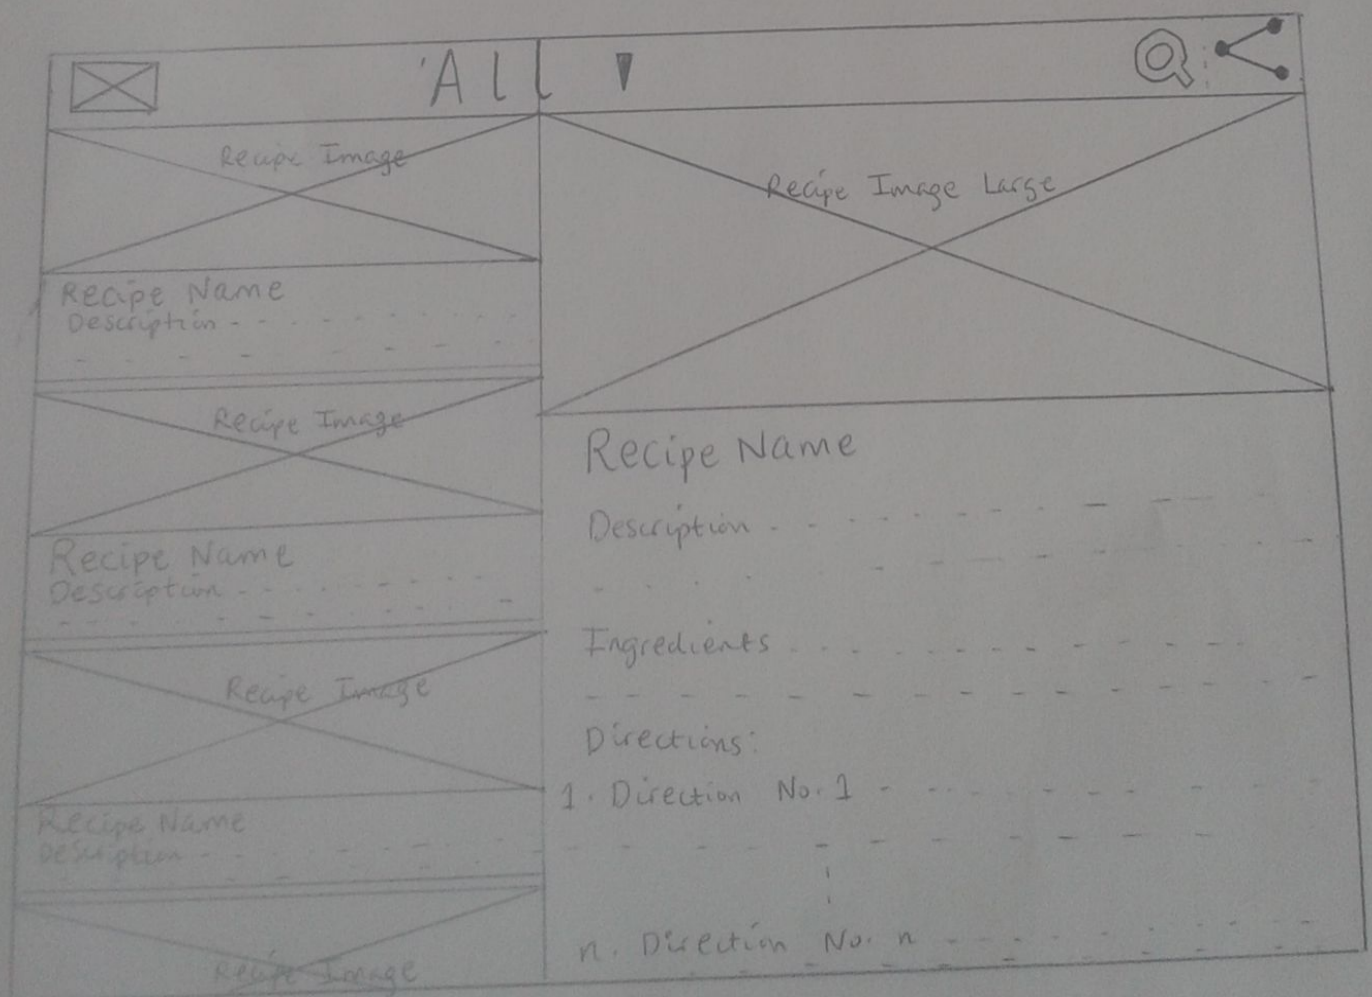 All
Recipe Image
Recipe Name
Description
Recipe Image
Recipe Name
Description
Recipe Image
Recipe Name
Description
Recipe Image
Recipe Image Large
Recipe Name
Description
Ingredients
Directions:
1. Direction No. 1
n. Direction No. n